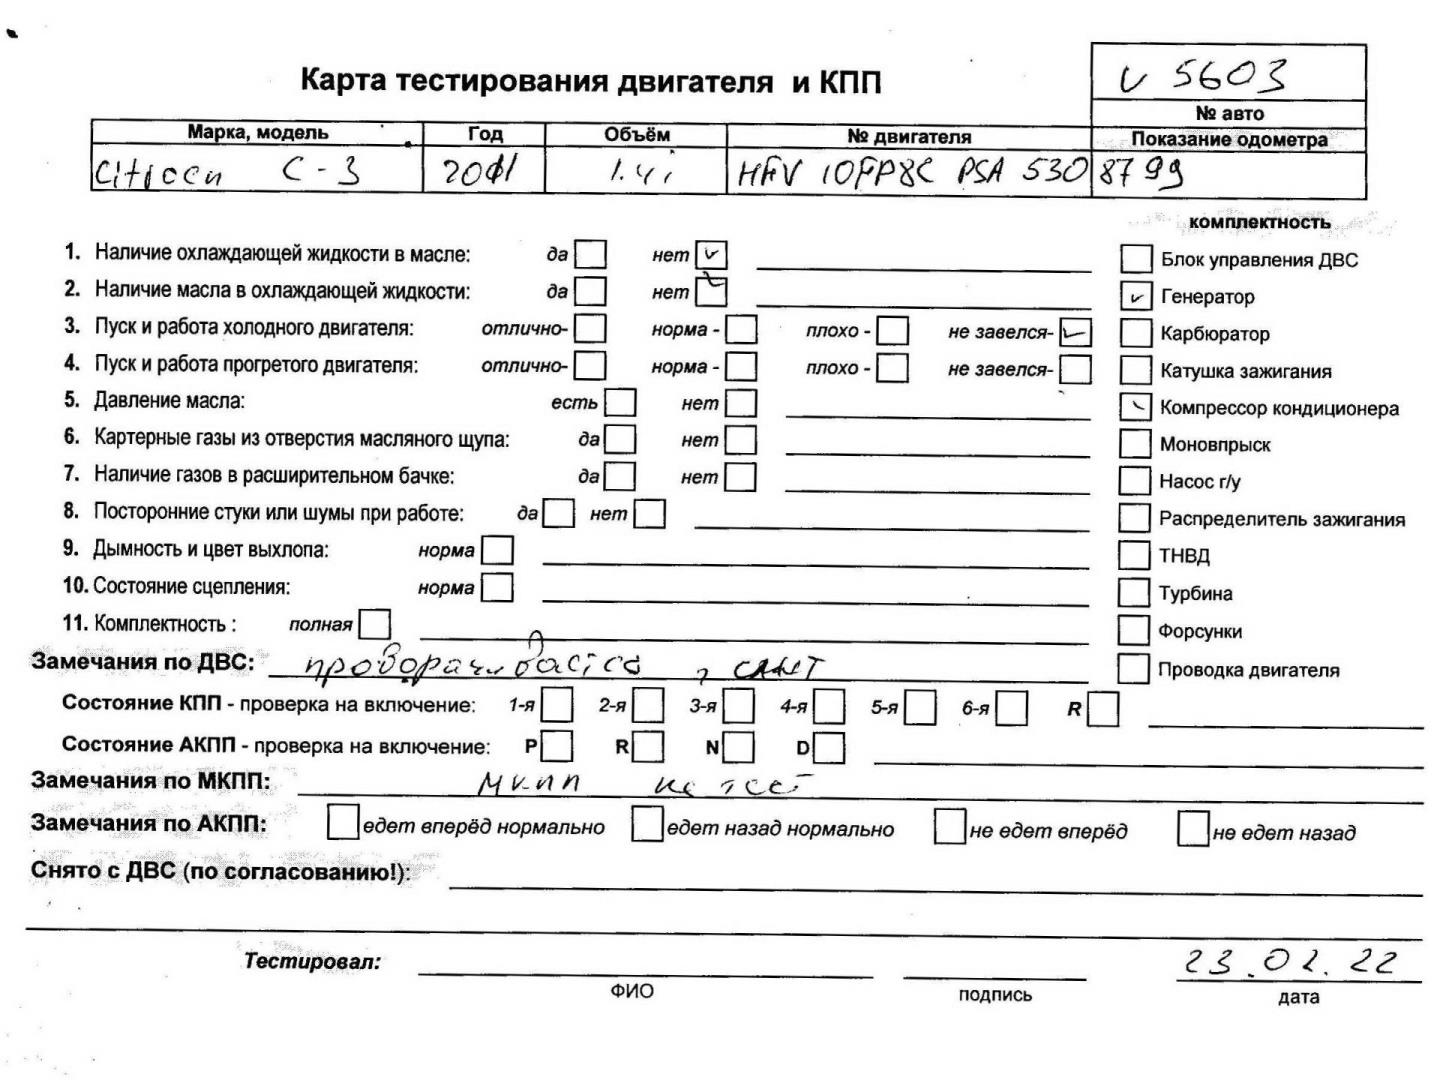 Карта тестирования двигателя и КПП
v 5603
№ авто
Марка, модель Год Объём № двигателя Показание одометра
Citroen C-3 2011 1.4i HFV 10FP8C PSA 530 8799
комплектность
1. Наличие охлаждающей жидкости в масле: да нет v
Блок управления ДВС
2. Наличие масла в охлаждающей жидкости: да нет v
v Генератор
3. Пуск и работа холодного двигателя: отлично- норма - плохо - не завелся- v
Карбюратор
4. Пуск и работа прогретого двигателя: отлично- норма - плохо - не завелся-
Катушка зажигания
5. Давление масла: есть нет
Компрессор кондиционера
6. Картерные газы из отверстия масляного щупа: да нет
Моновпрыск
7. Наличие газов в расширительном бачке: да нет
Насос г/у
8. Посторонние стуки или шумы при работе: да нет
Распределитель зажигания
9. Дымность и цвет выхлопа: норма
ТНВД
10. Состояние сцепления: норма
Турбина
11. Комплектность : полная
Форсунки
Замечания по ДВС: проворачивается
Проводка двигателя
Состояние КПП - проверка на включение: 1-я 2-я 3-я 4-я 5-я 6-я R
Состояние АКПП - проверка на включение: P R N D
Замечания по МКПП: МКПП не тест
Замечания по АКПП: едет вперёд нормально едет назад нормально не едет вперёд не едет назад
Снято с ДВС (по согласованию!):
Тестировал: 23.02.22
ФИО подпись дата